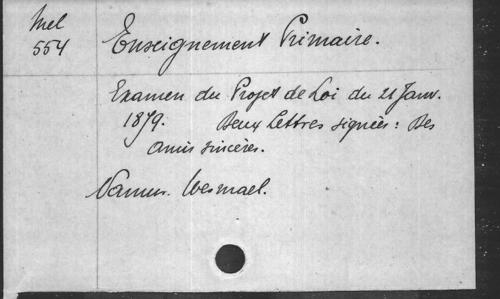 Mel
554
Enseignement Primaire.
Examen du Projet de Loi du 21 Janv.
1879. Deux Lettres signées: Des
amis sincères.
Namur. Wesmael.